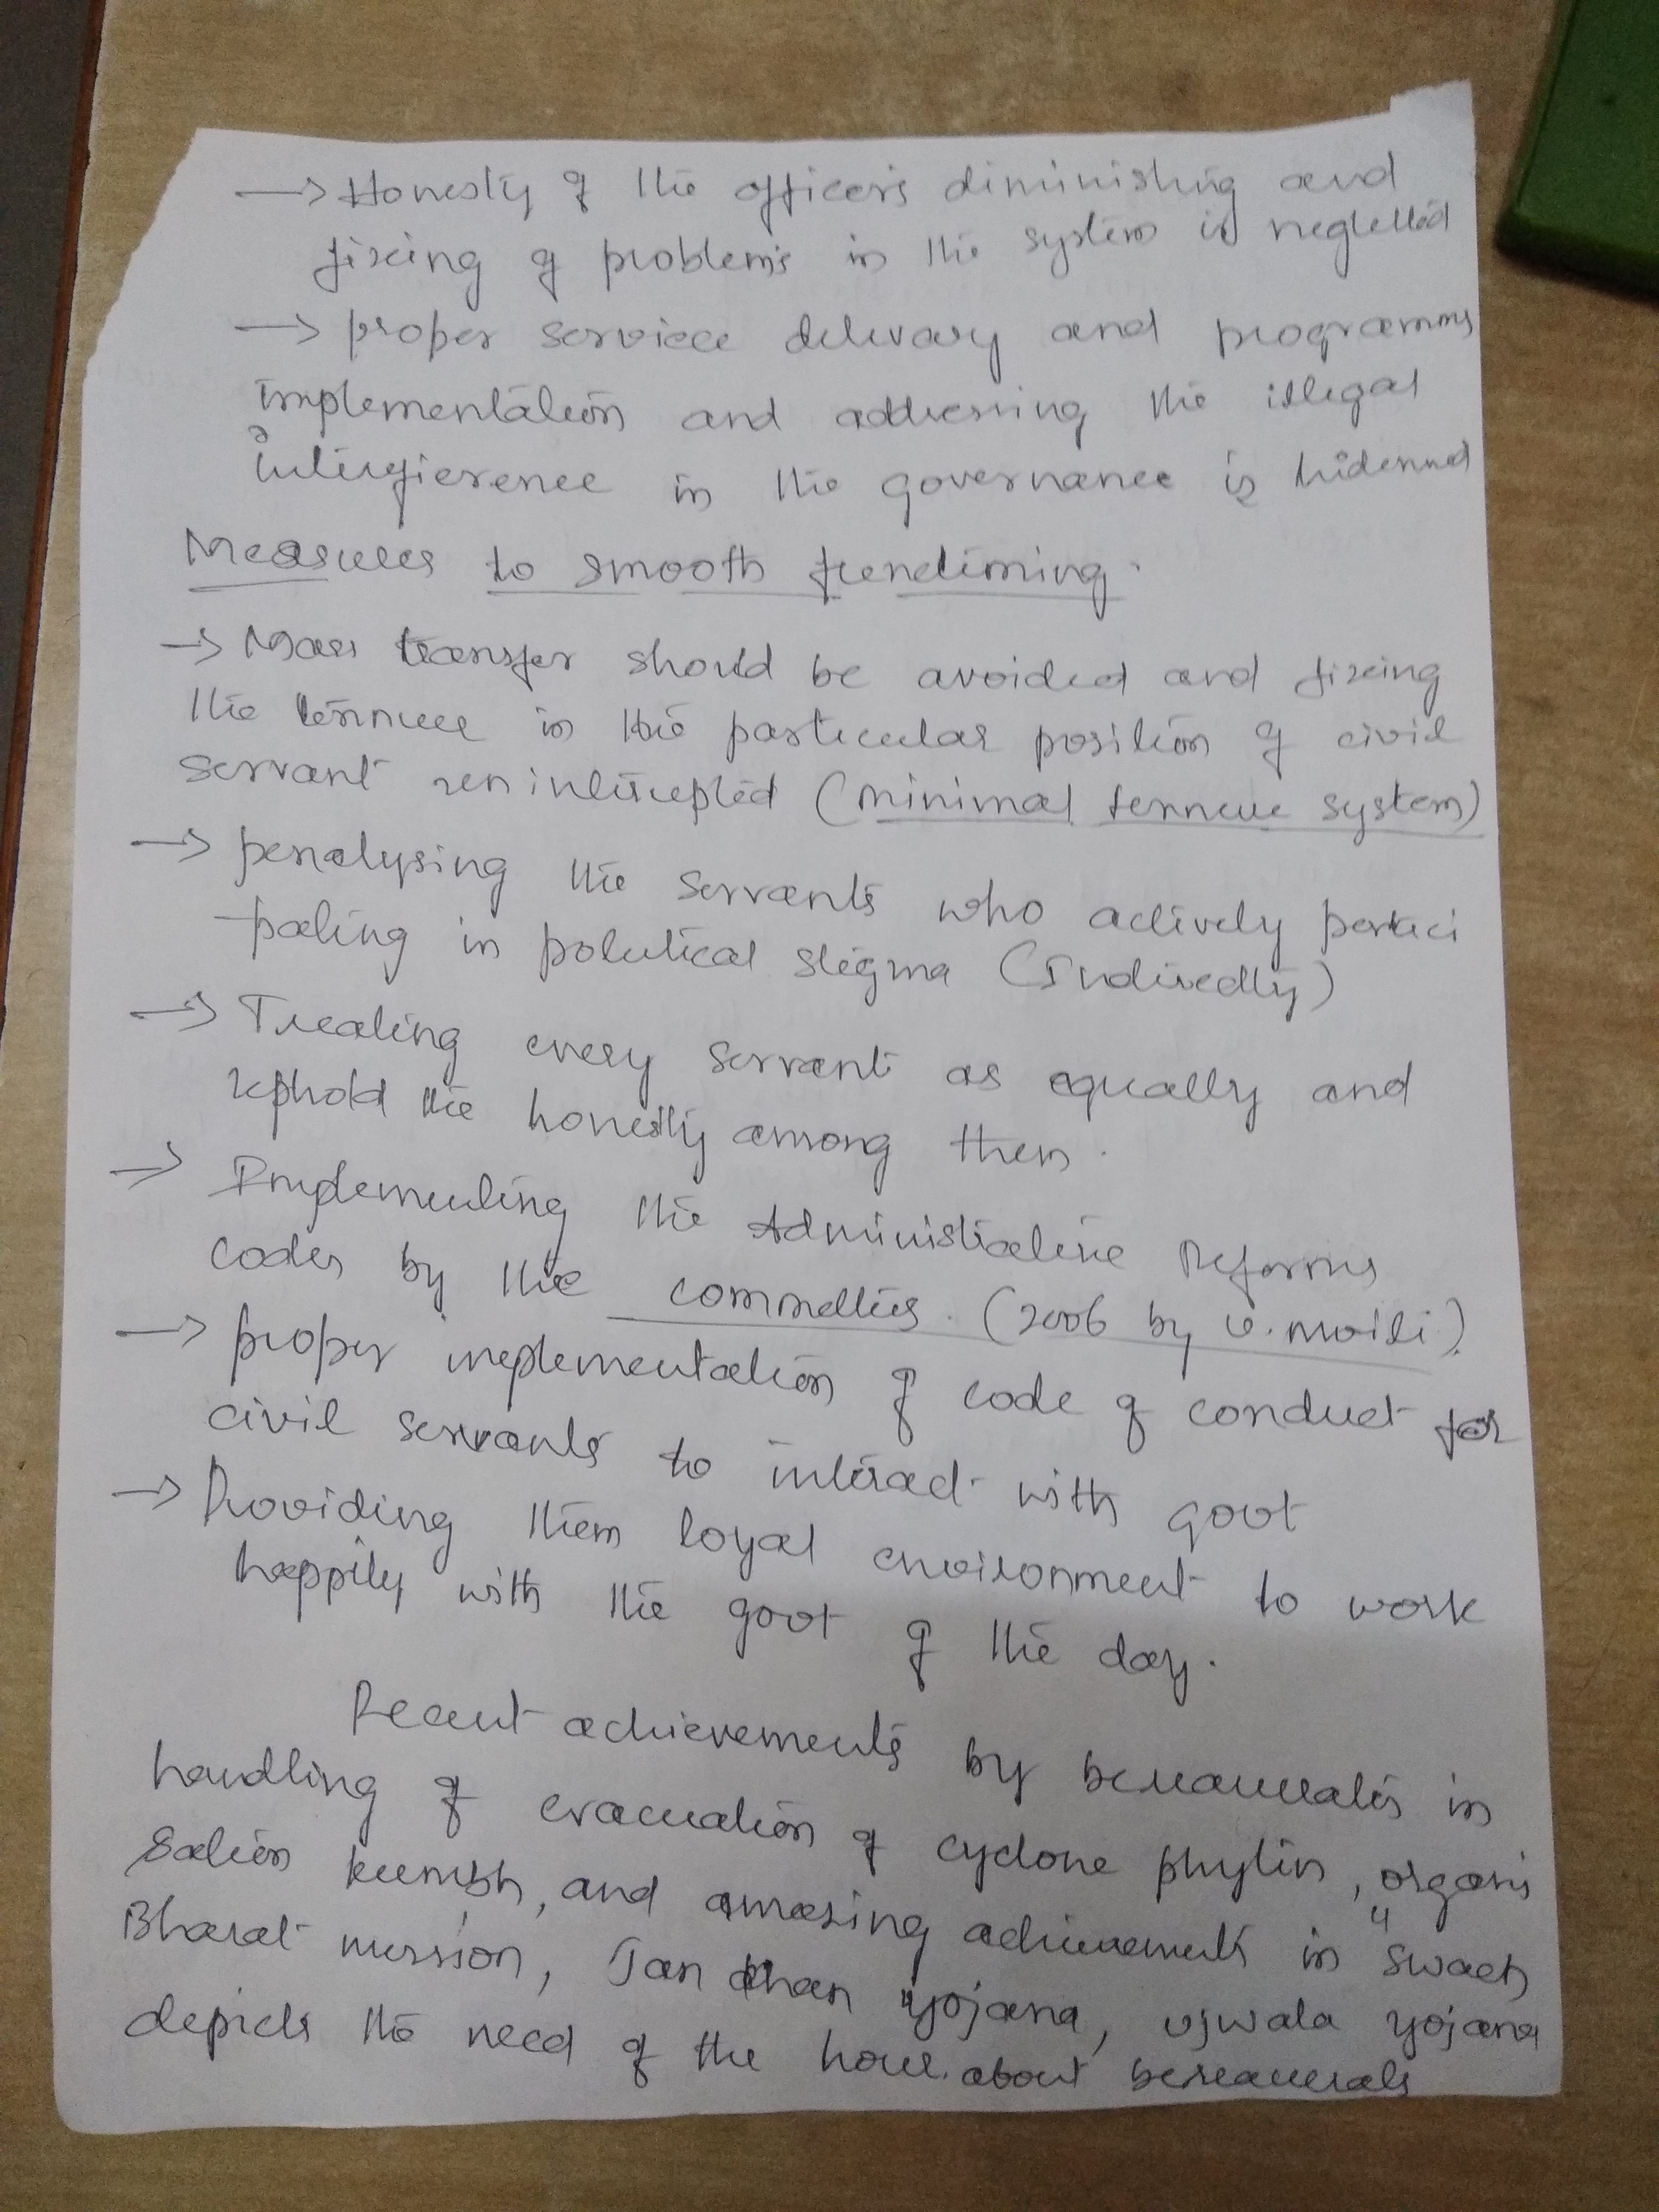 → Honesty of the officers diminishing and
fixing of problems in the system is neglected
→ proper service delivary and programms
implementation and addressing the illegal
interference in the governance is hidenned
Measures to smooth functioning.
→ Mass transfer should be avoided and fixing
the tennure in the particular position of civil
servant uninterrupted (minimal tennure system)
→ penalysing the servants who actively partici
pating in political stigma (Indirectly)
→ Treating every servant as equally and
uphold the honestly among them.
→ Implementing the Administrative Reforms
codes by the committies. (2006 by V. moili).
→ proper implementation of code of conduct for
civil servants to interact with govt
→ Providing them loyal environment to work
happily with the govt of the day.
Recent achievements by bureaucrats in
handling of evacuation of cyclone phylin, organi
sation kumbh, and amazing achievements in "Swach
Bharat mission, Jan dhan yojana, ujwala yojana
depicts the need of the hour about bureaucrats